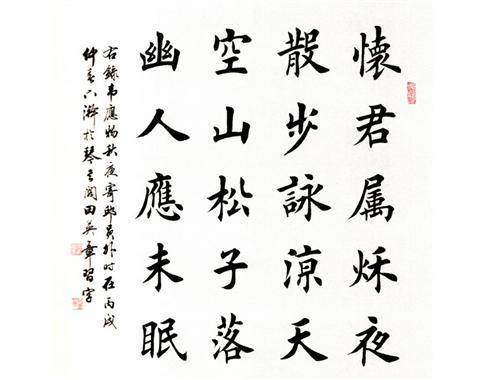 懷君属秌夜
散步詠涼天
空山松子落
幽人應未眠
右錄韦應物秋夜寄邱員外时在丙戌
仲春六游於琴音阁田英章習字